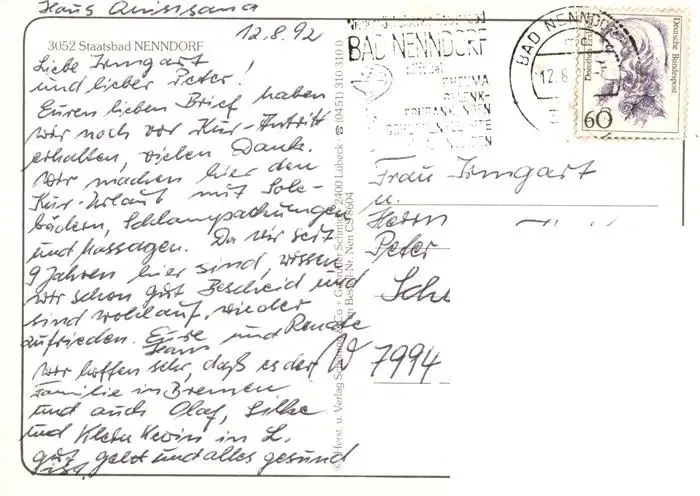 Haus Quisisana
12.8.92
3052 Staatsbad NENNDORF
Liebe Irmgart
und lieber Peter!
Euren lieben Brief haben
wir noch vor Kur-Antritt
erhalten, vielen Dank.
Wir machen hier den
Kur-Urlaub mit Sole-
bädern, Schlampackungen
und Massagen. Da wir seit
9 Jahren hier sind, wissen
wir schon gut Bescheid und
sind wohlauf, wieder
zufrieden. Eure und Renate
Hans
Wir hoffen sehr, daß es der
Familie in Bremen
und auch Olaf, Silke
und Klein Kevin in L.
gut geht und alles gesund
ist.
© Herst. u. Verlag Schöning & Co + Gebrüder Schmidt, 2400 Lübeck · ☎ (0451) 310 310 0
Bestell-Nr. Nen C 8604
BAD NENNDORF
RHEUMA
BAD NENNDORF
12.8.
Deutsche Bundespost
60
Frau Irmgart
u.
Herrn
Peter
Sch
W 7994